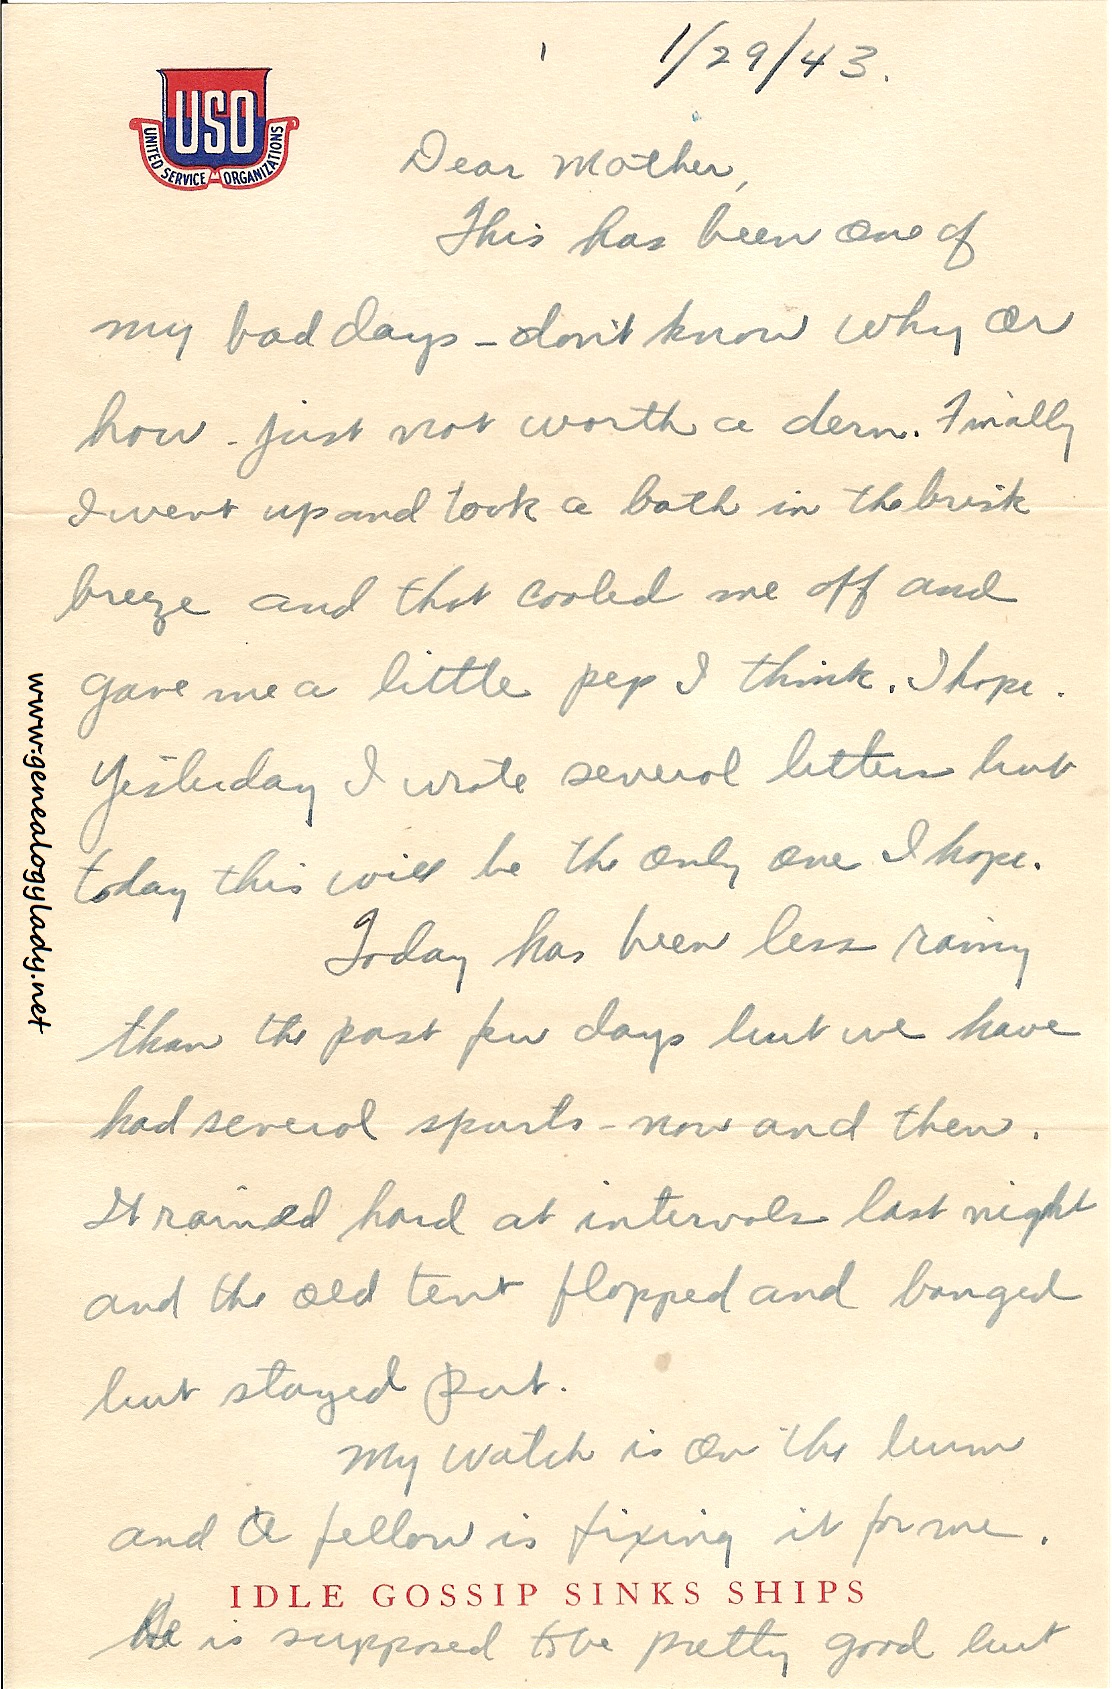 1/29/43.
USO
UNITED SERVICE ORGANIZATIONS
Dear Mother,
This has been one of
my bad days - don't know why or
how - just not worth a dern. Finally
I went up and took a bath in the brisk
breeze and that cooled me off and
gave me a little pep I think. I hope.
Yesterday I wrote several letters but
today this will be the only one I hope.
Today has been less rainy
than the past few days but we have
had several spurts - now and then.
It rained hard at intervals last night
and the old tent flopped and banged
but stayed put.
My watch is on the bum
and a fellow is fixing it for me.
IDLE GOSSIP SINKS SHIPS
He is supposed to be pretty good but
www.genealogylady.net